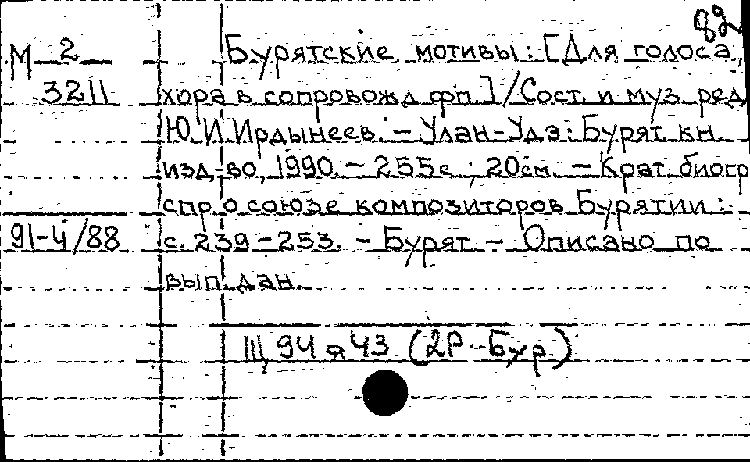 82
М 2
3211
Бурятские мотивы: [Для голоса,
хора в сопровожд фп.] / Сост. и муз. ред
Ю. И. Ирдынеев. – Улан-Удэ: Бурят. кн.
изд-во, 1990. – 255 с.; 20 см. – Крат. биогр
спр. о союзе композиторов Бурятии:
91-4/88
с. 239-253. – Бурят. – Описано по
вып. дан.
Щ 94 я 43 (2Р-Бур)